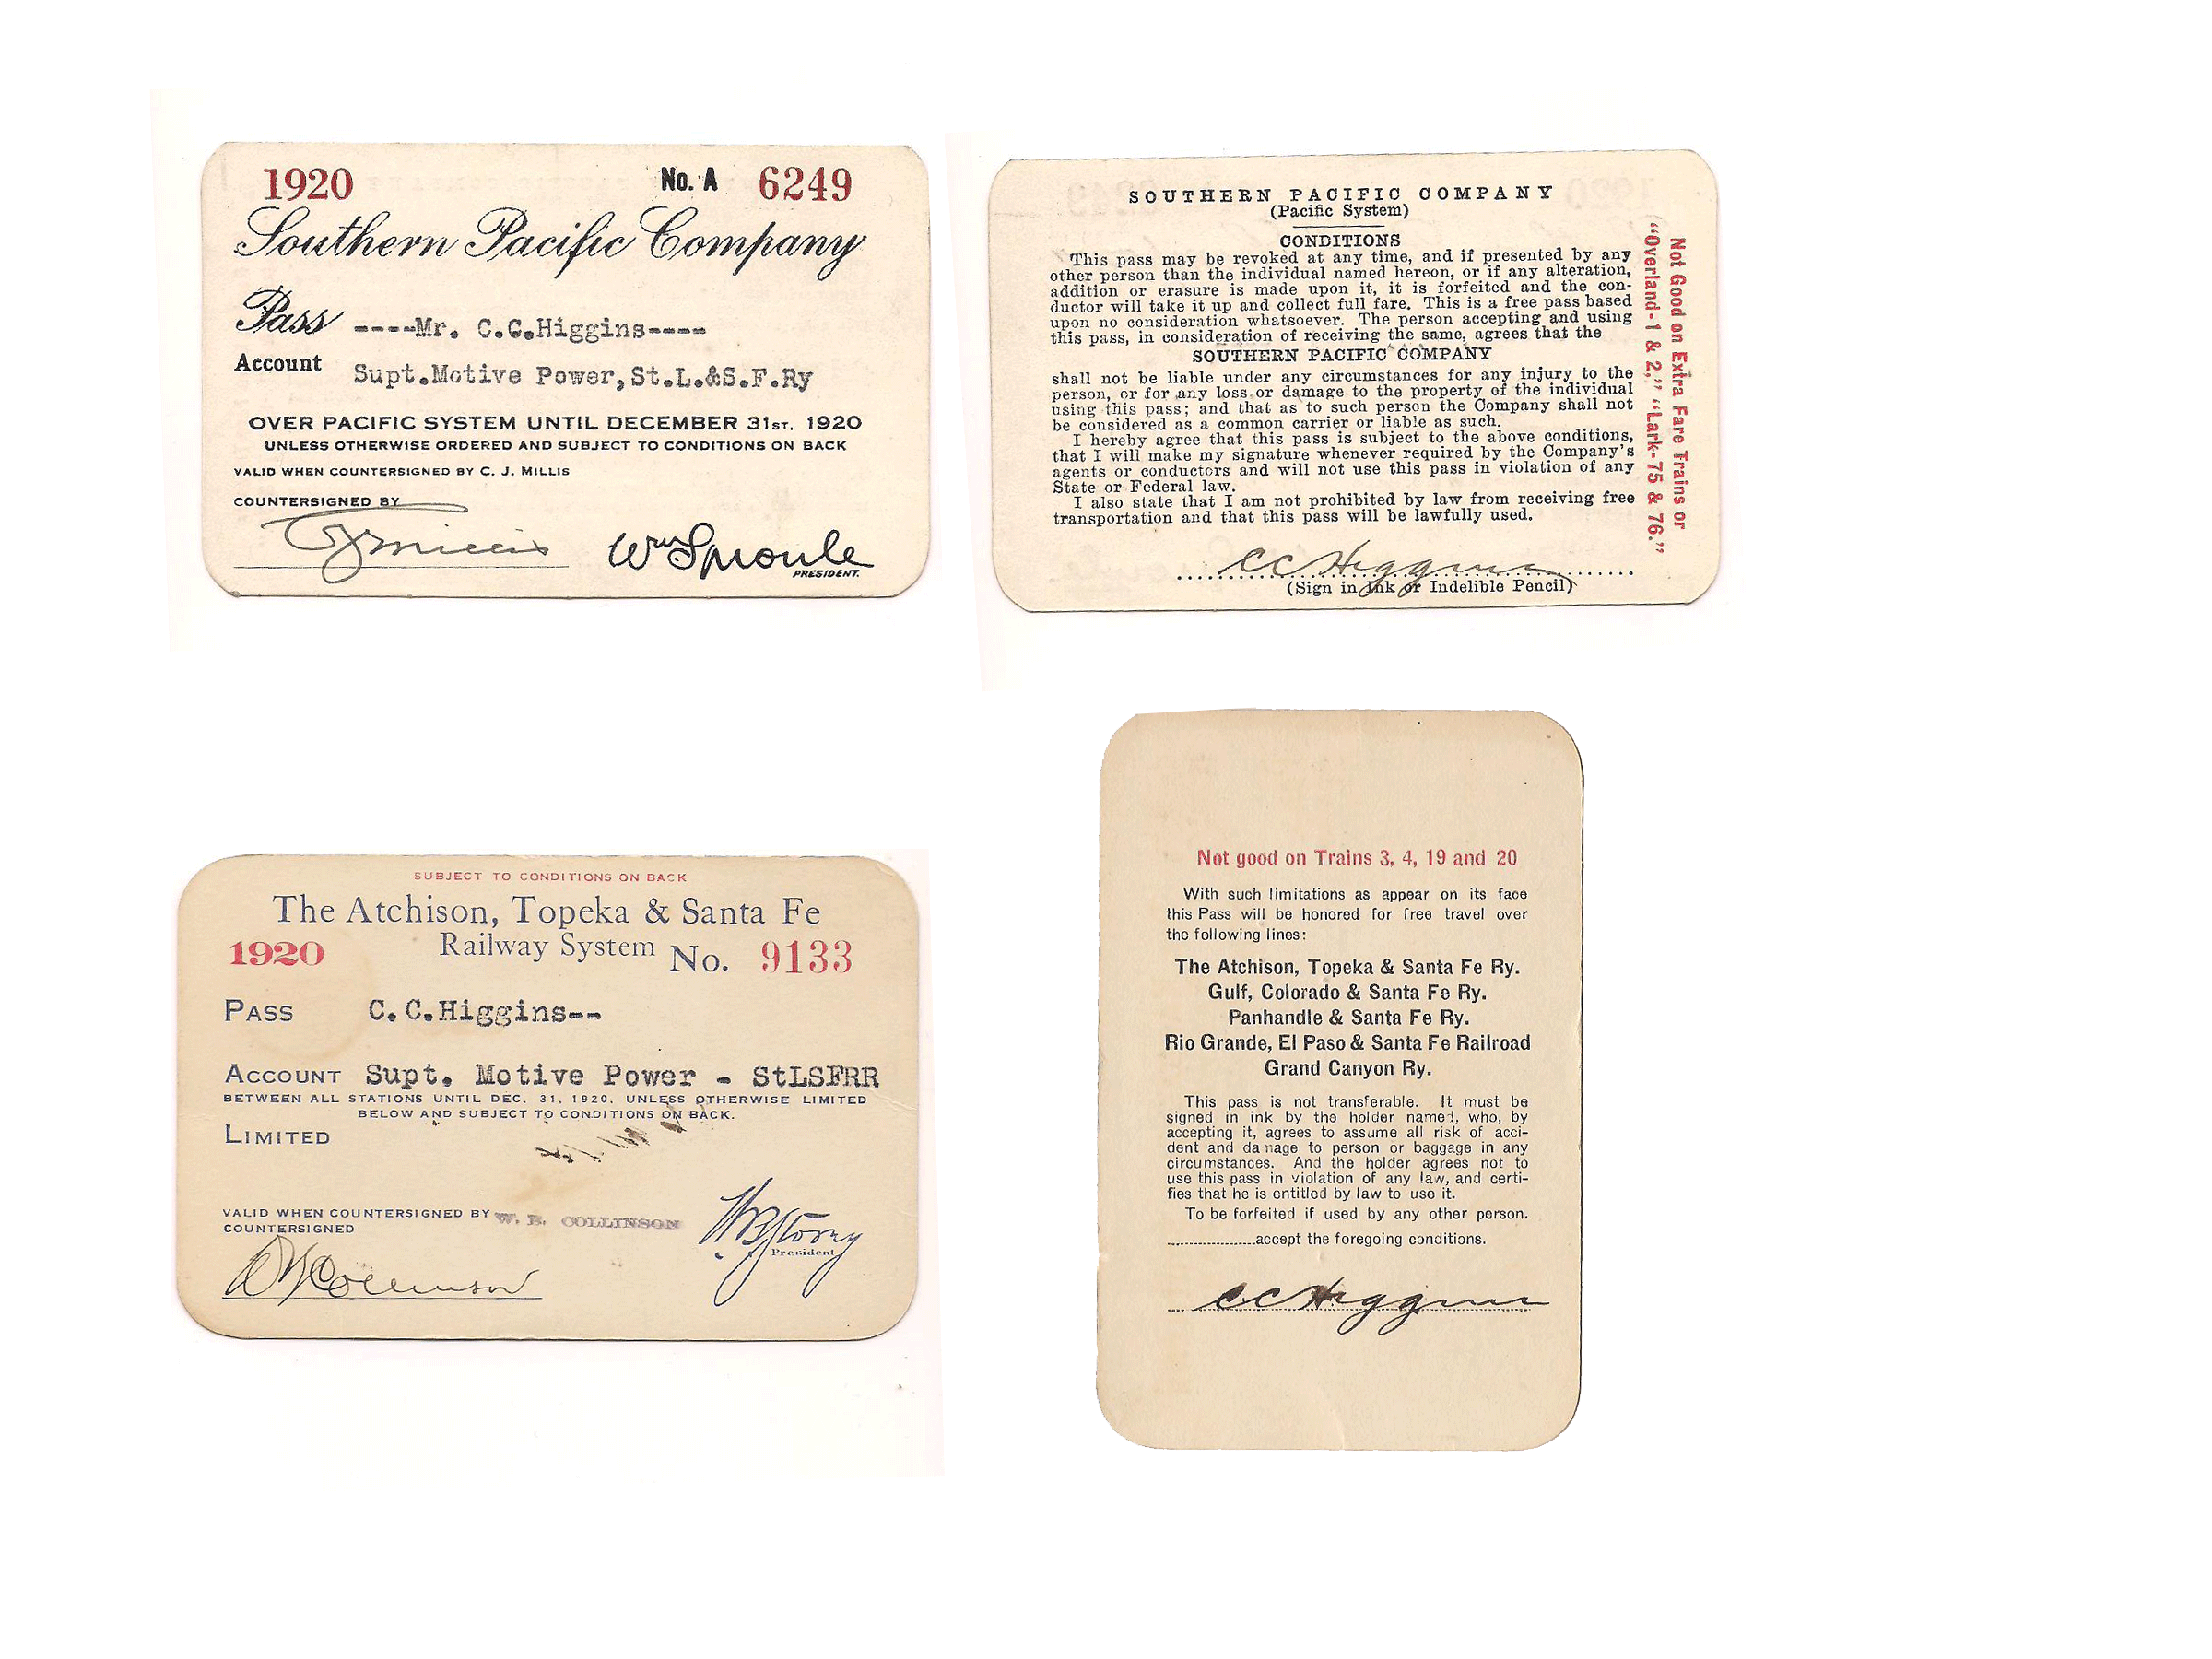 1920 No. A 6249
Southern Pacific Company
Pass ----Mr. C.C.Higgins----
Account Supt.Motive Power,St.L.&S.F.Ry
OVER PACIFIC SYSTEM UNTIL DECEMBER 31ST, 1920
UNLESS OTHERWISE ORDERED AND SUBJECT TO CONDITIONS ON BACK
VALID WHEN COUNTERSIGNED BY C. J. MILLIS
COUNTERSIGNED BY
CJ Millis
Wm Sproule
PRESIDENT.
SOUTHERN PACIFIC COMPANY
(Pacific System)
CONDITIONS
This pass may be revoked at any time, and if presented by any
other person than the individual named hereon, or if any alteration,
addition or erasure is made upon it, it is forfeited and the con-
ductor will take it up and collect full fare. This is a free pass based
upon no consideration whatsoever. The person accepting and using
this pass, in consideration of receiving the same, agrees that the
SOUTHERN PACIFIC COMPANY
shall not be liable under any circumstances for any injury to the
person, or for any loss or damage to the property of the individual
using this pass; and that as to such person the Company shall not
be considered as a common carrier or liable as such.
I hereby agree that this pass is subject to the above conditions,
that I will make my signature whenever required by the Company's
agents or conductors and will not use this pass in violation of any
State or Federal law.
I also state that I am not prohibited by law from receiving free
transportation and that this pass will be lawfully used.
CC Higgins
(Sign in Ink or Indelible Pencil)
Not Good on Extra Fare Trains or
"Overland-1 & 2," "Lark-75 & 76."
SUBJECT TO CONDITIONS ON BACK
The Atchison, Topeka & Santa Fe
Railway System
1920 No. 9133
PASS C.C.Higgins--
ACCOUNT Supt. Motive Power - StLSFRR
BETWEEN ALL STATIONS UNTIL DEC. 31, 1920, UNLESS OTHERWISE LIMITED
BELOW AND SUBJECT TO CONDITIONS ON BACK.
LIMITED
VALID WHEN COUNTERSIGNED BY W. B. COLLINSON
COUNTERSIGNED
WB Collinson
WB Storey
President
Not good on Trains 3, 4, 19 and 20
With such limitations as appear on its face
this Pass will be honored for free travel over
the following lines:
The Atchison, Topeka & Santa Fe Ry.
Gulf, Colorado & Santa Fe Ry.
Panhandle & Santa Fe Ry.
Rio Grande, El Paso & Santa Fe Railroad
Grand Canyon Ry.
This pass is not transferable. It must be
signed in ink by the holder named, who, by
accepting it, agrees to assume all risk of acci-
dent and damage to person or baggage in any
circumstances. And the holder agrees not to
use this pass in violation of any law, and certi-
fies that he is entitled by law to use it.
To be forfeited if used by any other person.
accept the foregoing conditions.
CC Higgins